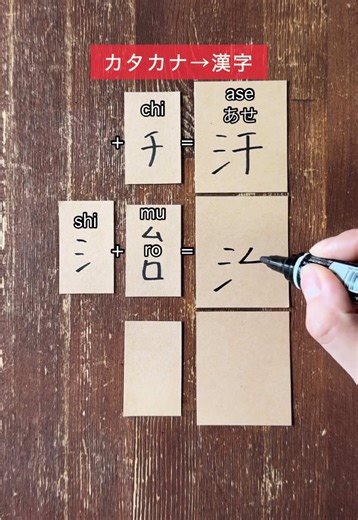 カタカナ→漢字
chi
ase
あせ
+ チ = 汗
shi
シ
+
mu
ム
ro
ロ
=